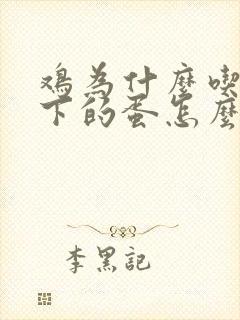 鸡為什麼喫
下的蛋怎麼
李黑記